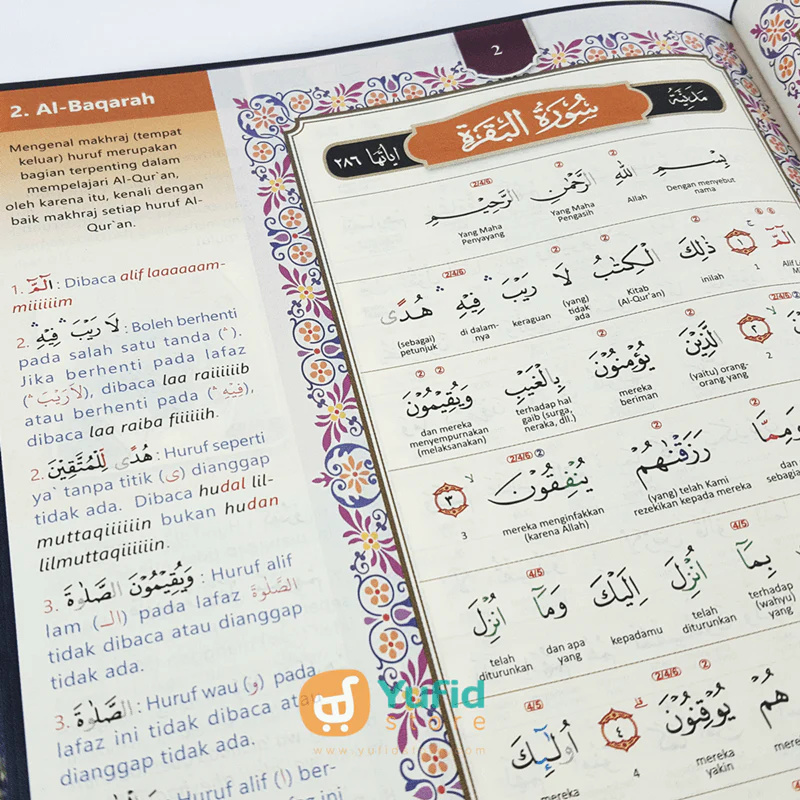 2
2. Al-Baqarah
Mengenal makhraj (tempat
keluar) huruf merupakan
bagian terpenting dalam
mempelajari Al-Qur`an,
oleh karena itu, kenali dengan
baik makhraj setiap huruf Al-
Qur`an.
1. الٓمّٓ : Dibaca alif laaaaaam-
miiiiiim
2. لَا رَيْبَ ۛ فِيْهِ ۛ : Boleh berhenti
pada salah satu tanda ( ۛ ).
Jika berhenti pada lafaz
(لَارَيْبَ ۛ), dibaca laa raiiiiiib
atau berhenti pada (فِيْهِ ۛ),
dibaca laa raiba fiiiiiih.
2. هُدًى لِّلْمُتَّقِيْنَ : Huruf seperti
ya` tanpa titik (ى) dianggap
tidak ada. Dibaca hudal lil-
muttaqiiiiiin bukan hudan
lilmuttaqiiiiiin.
3. وَيُقِيْمُوْنَ الصَّلٰوةَ : Huruf alif
lam (الـ) pada lafaz الصَّلٰوةَ
tidak dibaca atau dianggap
tidak ada.
3. الصَّلٰوةَ : Huruf wau (و) pada
lafaz ini tidak dibaca atau
dianggap tidak ada.
Huruf alif (ا) ber-
مَدَنِيَّة سُوْرَةُ الْبَقَرَةِ اٰيَاتُهَا ٢٨٦
② ② 2/4/6
بِسْمِ اللّٰهِ الرَّحْمٰنِ الرَّحِيْمِ
Dengan menyebut nama
Allah
Yang Maha Pengasih
Yang Maha Penyayang
الٓمّٓ ۚ ١ ذٰلِكَ الْكِتٰبُ لَا رَيْبَ ۛ فِيْهِ ۛ هُدًى
1
inilah
Kitab (Al-Qur'an)
(yang) tidak ada
keraguan
di dalam-nya
(sebagai) petunjuk
٢ الَّذِيْنَ يُؤْمِنُوْنَ بِالْغَيْبِ وَيُقِيْمُوْنَ
2
(yaitu) orang-orang yang
mereka beriman
terhadap hal gaib (surga, neraka, dll.)
dan mereka menyempurnakan (melaksanakan)
وَمِمَّا رَزَقْنٰهُمْ يُنْفِقُوْنَ ٣
(yang) telah Kami rezekikan kepada mereka
mereka menginfakkan (karena Allah)
3
بِمَآ اُنْزِلَ اِلَيْكَ وَمَآ اُنْزِلَ
terhadap (wahyu) yang
telah diturunkan
kepadamu
dan apa yang
telah diturunkan
هُمْ يُوْقِنُوْنَ ٤ اُولٰۤىِٕكَ
mereka yakin
4
mereka
Yufid
store
www.yufidstore.com